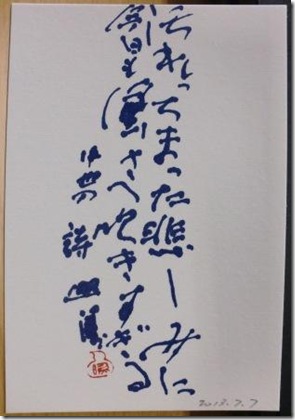 汚れっちまった悲しみに
今日も風さへ吹きすぎる
中也の 詩